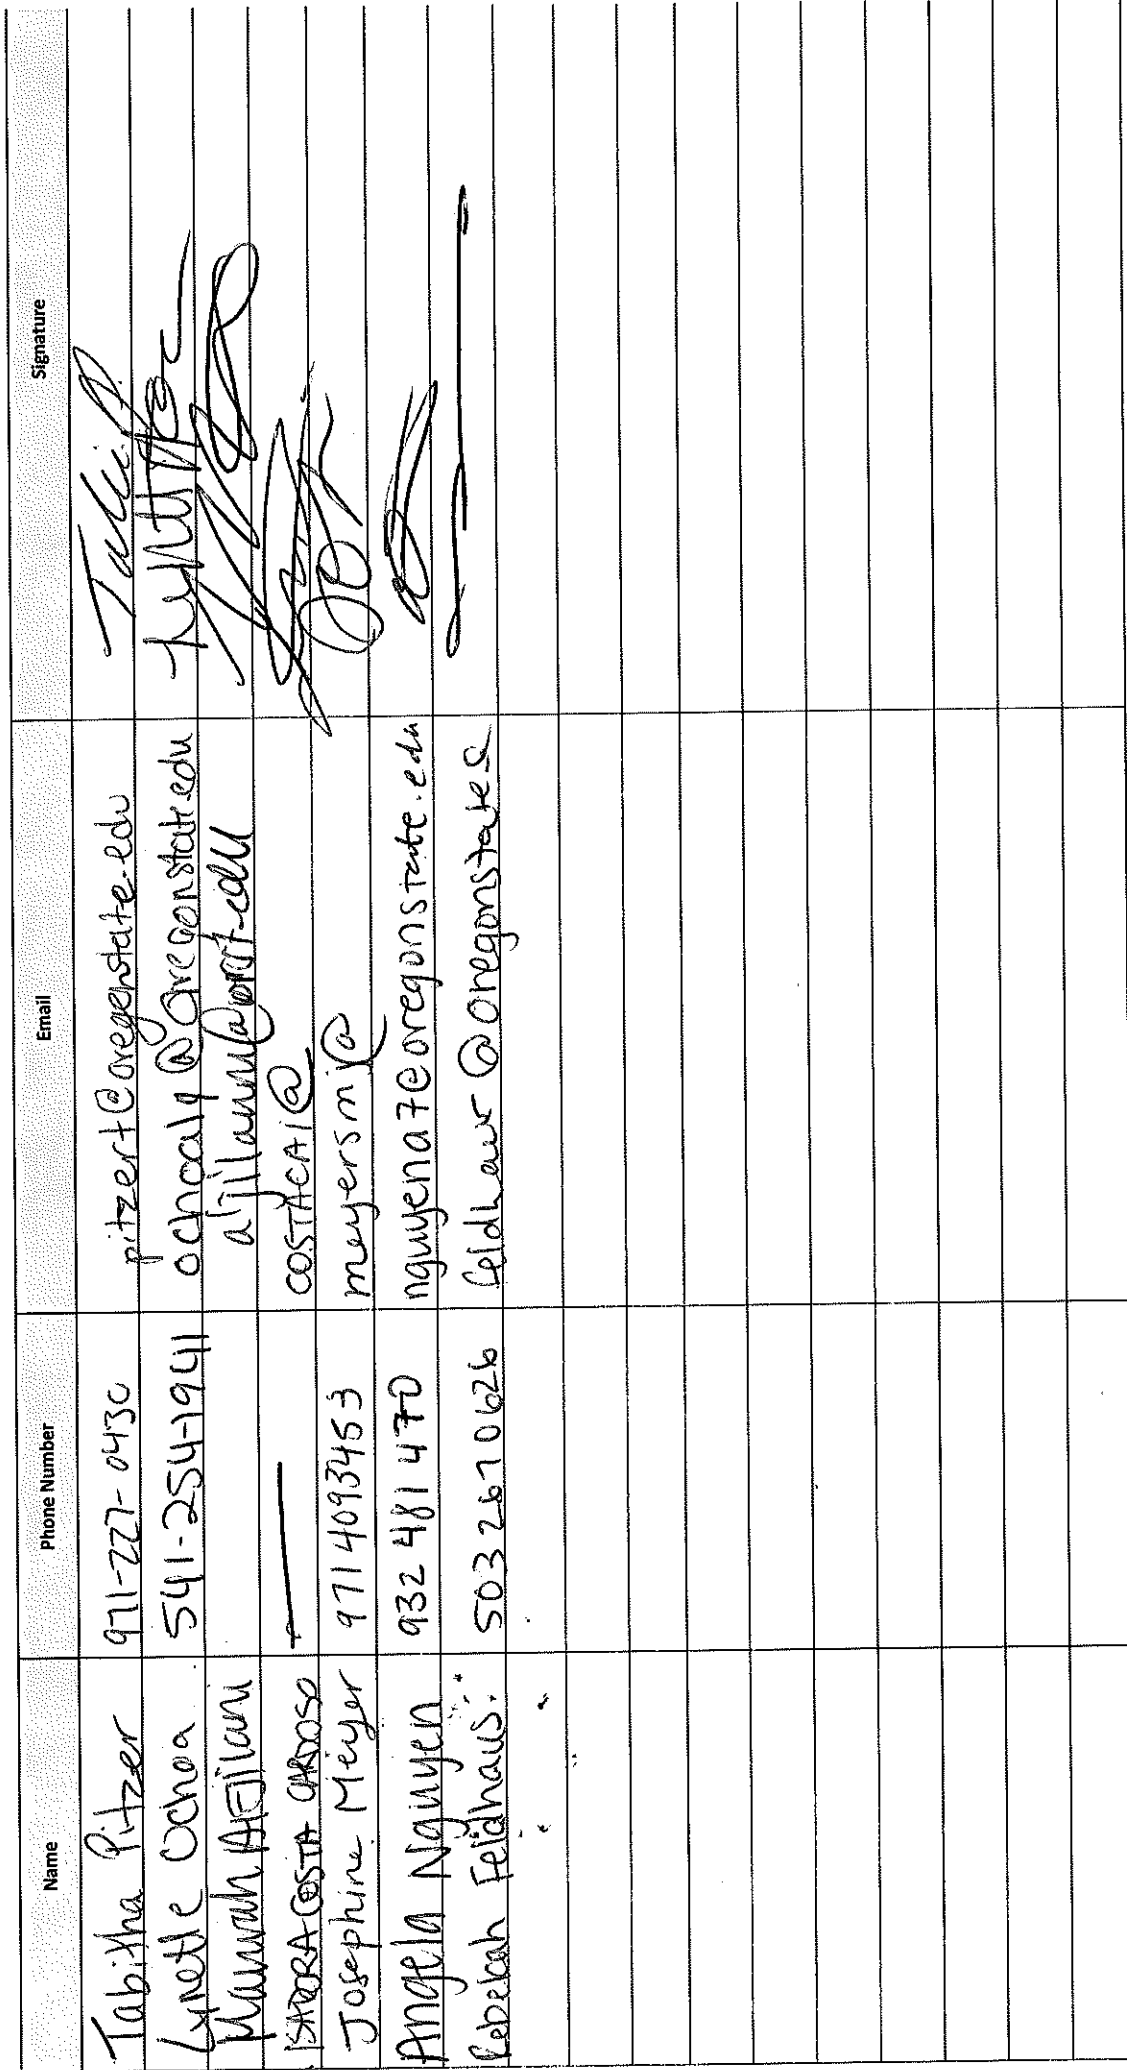 Name Phone Number Email Signature
Tabitha Pitzer 971-227-0430 pitzert@oregonstate.edu
Lynette Ochoa 541-254-1941 ochoaly@oregonstate.edu
Marwah AlJilani aljilanm@
ISADORA COSTA CARDOSO — COSTACAI@
Josephine Meyer 971 4093453 meyersmj@
Angela Nguyen 932 481 470 nguyena7@oregonstate.edu
Rebekah Feldhaus 503 267 0626 feldhaur@oregonstate